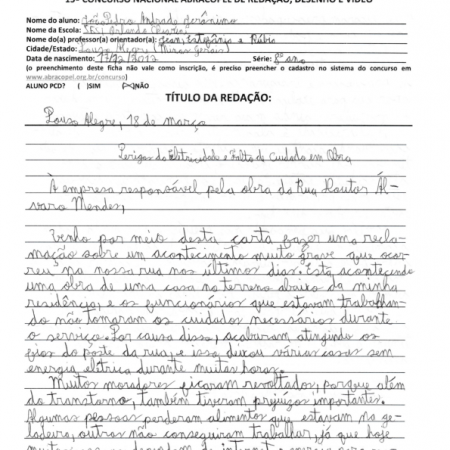 CONCURSO NACIONAL ABRACOPEL DE REDAÇÃO, DESENHO E VÍDEO
Nome do aluno: João Pedro Andrade Jerônimo
Nome da Escola:
Nome do(a) professor(a) orientador(a): Jean, Estefânia e Rúbio
Cidade/Estado: Pouso Alegre (Minas Gerais)
Data de nascimento: 17/12/2012 Série: 8º ano
(o preenchimento desta ficha não vale como inscrição, é preciso preencher o cadastro no sistema do concurso em
www.abracopel.org.br/concurso)
ALUNO PCD? ( )SIM (X)NÃO
TÍTULO DA REDAÇÃO:
Pouso Alegre, 18 de março
Perigos da Eletricidade e Falta de Cuidado em Obra
À empresa responsável pela obra da Rua Doutor Ál-
varo Mendes,
Venho por meio desta carta fazer uma recla-
mação sobre um acontecimento muito grave que ocor-
reu na nossa rua nos últimos dias. Está acontecendo
uma obra de uma casa no terreno abaixo da minha
residência, e os funcionários que estavam trabalhan-
do não tomaram os cuidados necessários durante
o serviço. Por causa disso, acabaram atingindo os
fios do poste da rua, e isso deixou várias casas sem
energia elétrica durante muitas horas.
Muitos moradores ficaram revoltados, porque além
do transtorno, também tiveram prejuízos importantes.
Algumas pessoas perderam alimentos que estavam na ge-
ladeira, outras não conseguiram trabalhar, já que hoje